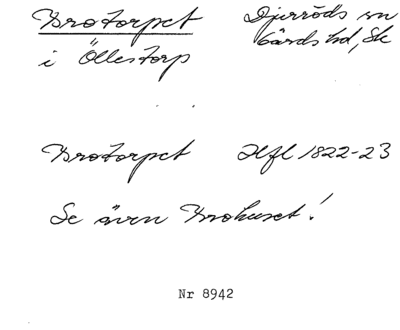 Brotorpet Djurröds sn
i Öllestorp Gärds hd, Sk
Brotorpet Hfl 1822-23
Se även Brohuset!
Nr 8942